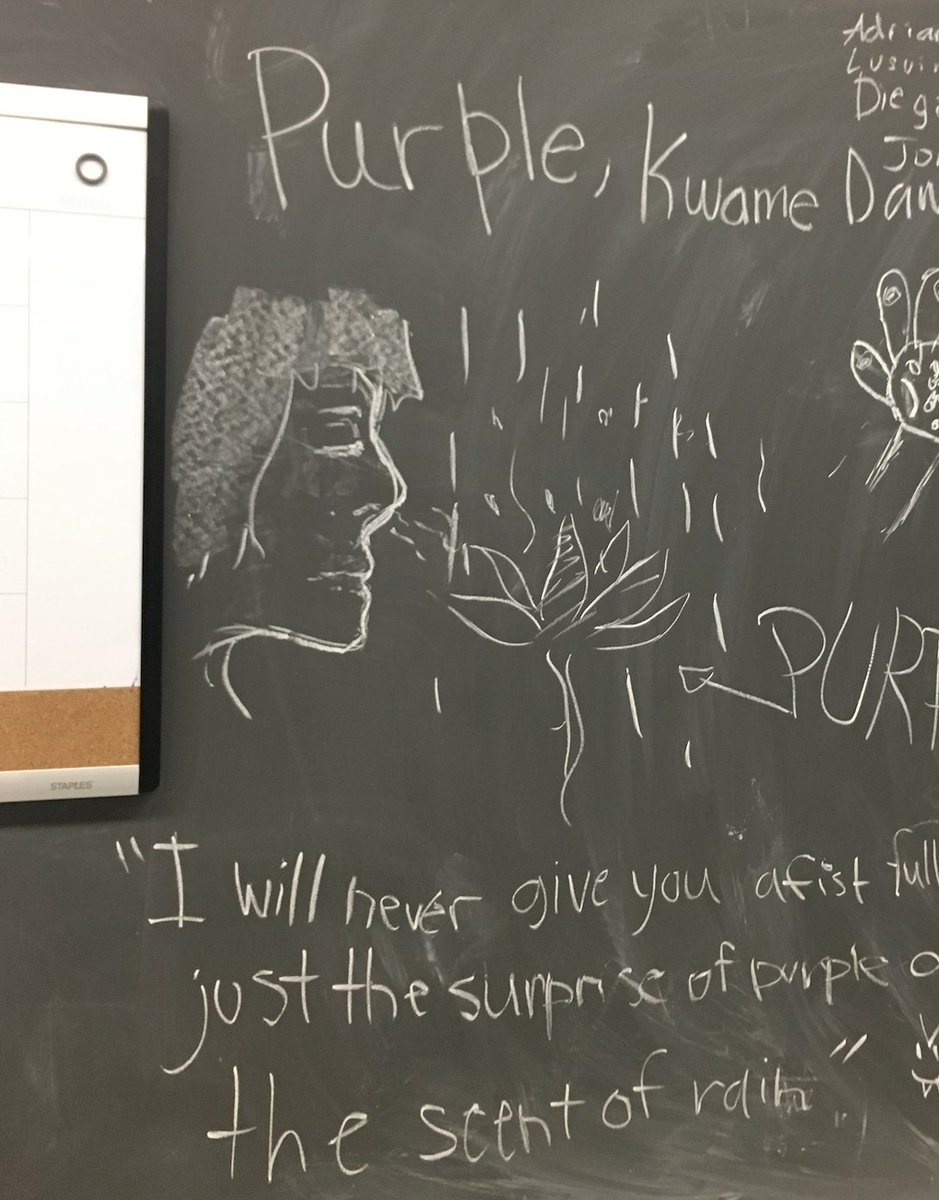 Adrian
Dieg
Jo
Purple, Kwame Daw
PURP
"I will never give you a fist full
just the surprise of purple a
the scent of rain"
NOTES
STAPLES